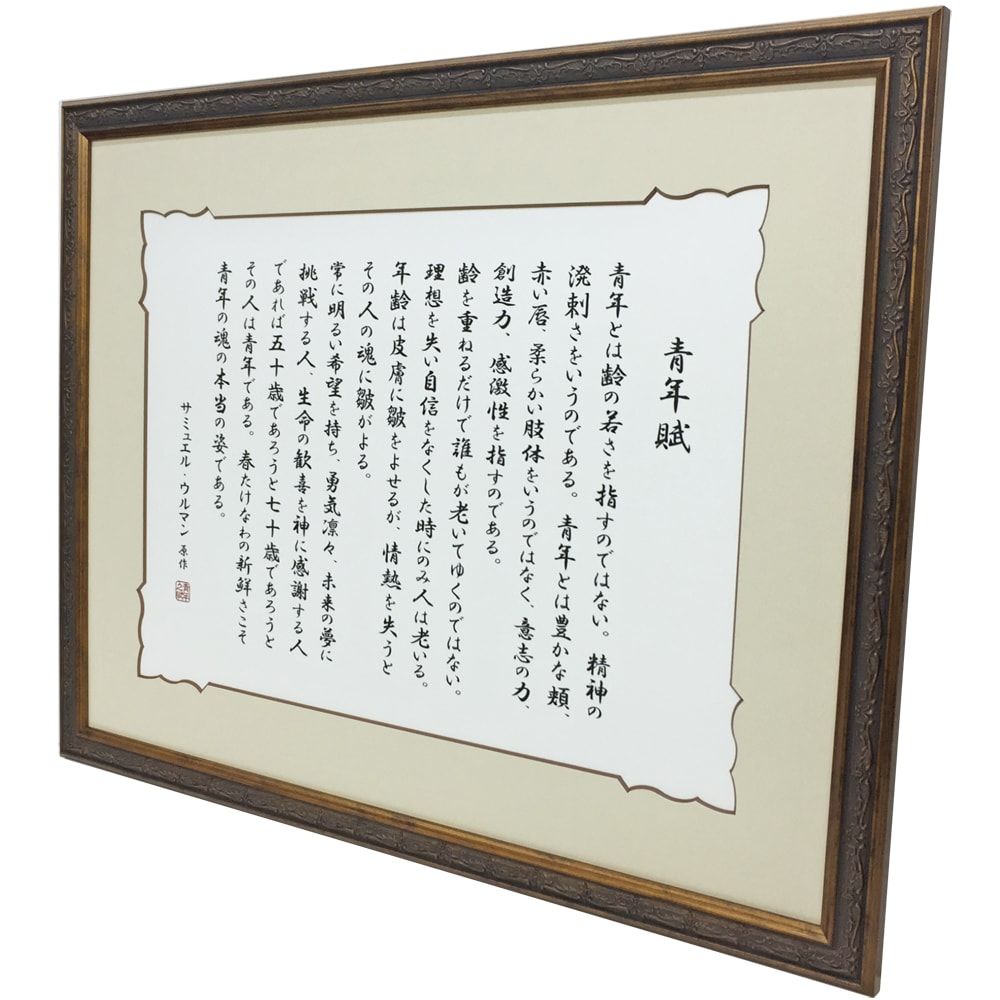 青年賦
青年とは齢の若さを指すのではない。精神の
溌剌さをいうのである。青年とは豊かな頬、
赤い唇、柔らかい肢体をいうのではなく、意志の力、
創造力、感激性を指すのである。
齢を重ねるだけで誰もが老いてゆくのではない。
理想を失い自信をなくした時にのみ人は老いる。
年齢は皮膚に皺をよせるが、情熱を失うと
その人の魂に皺がよる。
常に明るい希望を持ち、勇気凛々、未来の夢に
挑戦する人、生命の歓喜を神に感謝する人
であれば五十歳であろうと七十歳であろうと
その人は青年である。春たけなわの新鮮さこそ
青年の魂の本当の姿である。
サミュエル・ウルマン 原作